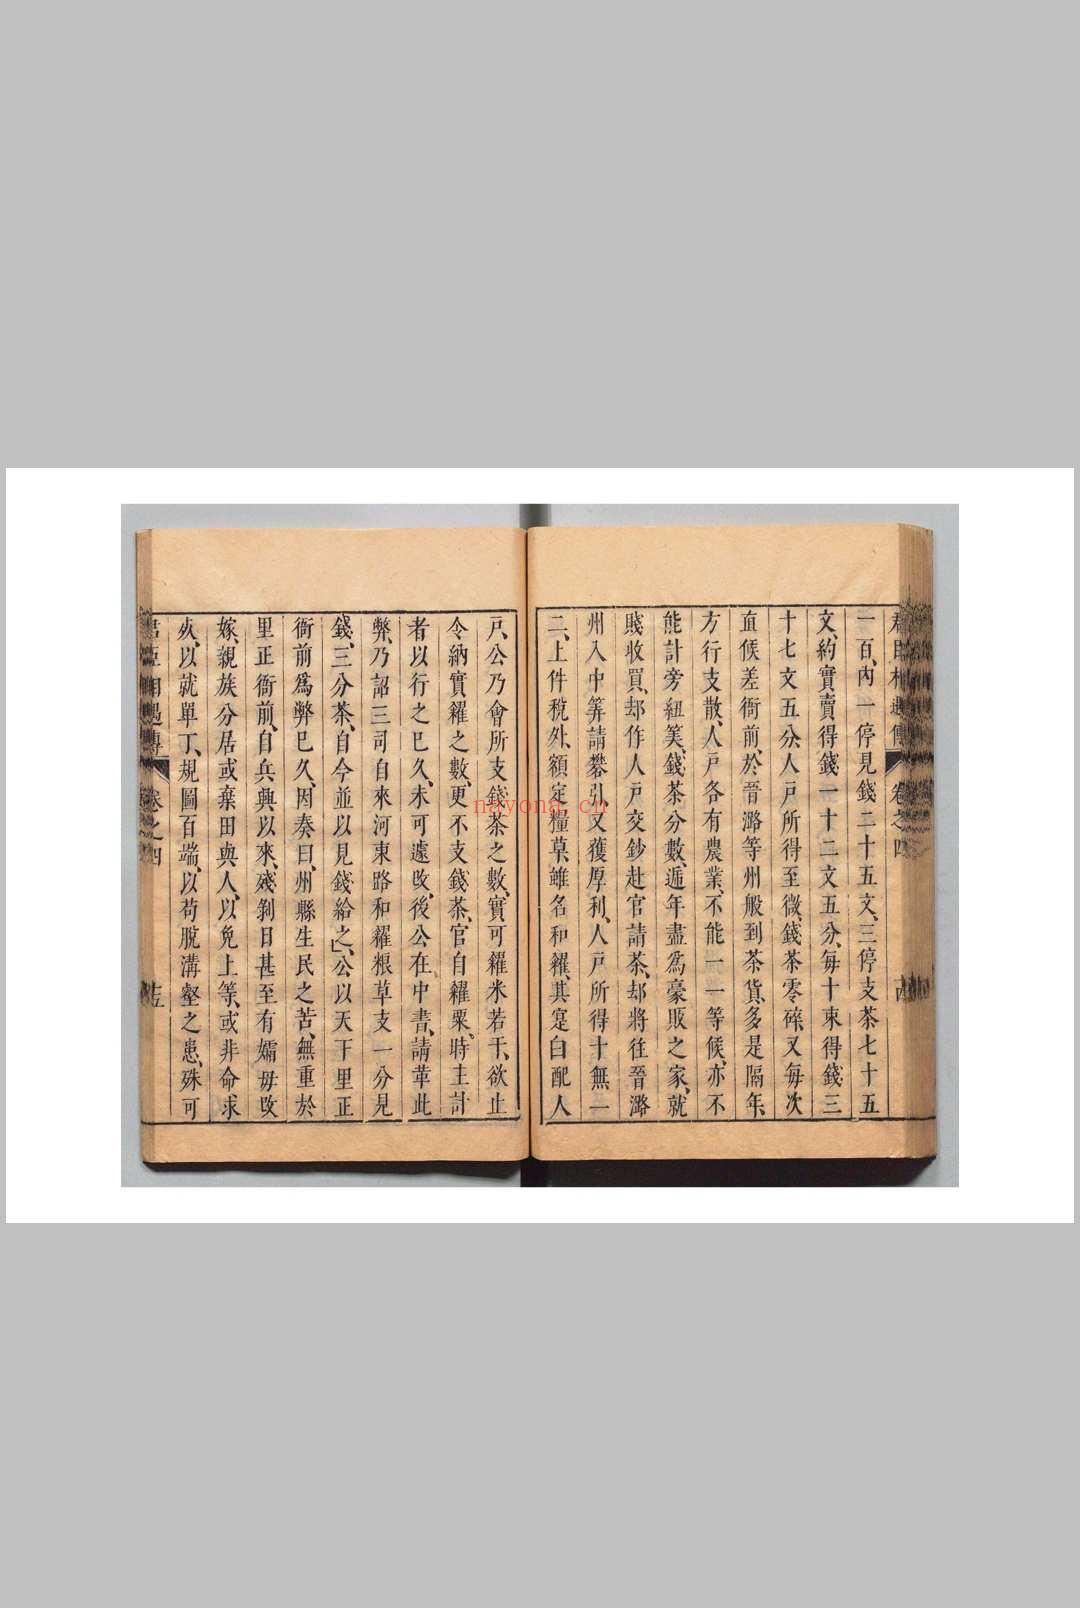 一百、內一停見錢二十五文、三停支茶七十五
文、約實賣得錢一十二文五分、每十束得錢三
十七文五分、人戸所得至微、錢茶零碎、又每次
直候差衙前、於晉潞等州般到茶貨、多是隔年、
方行支散、人戸各有農業、不能一一等候、亦不
能計旁紐筭、錢茶分數、遞年盡爲豪敗之家、就
賤收買、却作人戸交鈔赴官請茶、却將往晉潞
州入中筭請礬引、又獲厚利、人戸所得十無一
二、上件稅外、額定糧草、雖名和糴、其寔白配人
戸、公乃會所支錢茶之數、實可糴米若干、欲止
令納實糴之數、更不支錢茶、官自糴粟、時主計
者以行之已久、未可遽改、後公在中書、請革此
弊、乃詔三司自來河東路和糴粮草支一分見
錢、三分茶、自今並以見錢給之、公以天下里正
衙前爲弊已久、因奏曰、州縣生民之苦、無重於
里正衙前、自兵興以來、殘剝日甚至有孀母改
嫁、親族分居或棄田與人、以免上等、或非命求
死、以就單丁、規圖百端、以苟脫溝壑之患、殊可
君臣相遇傳 卷之四 十五
nayona.cn